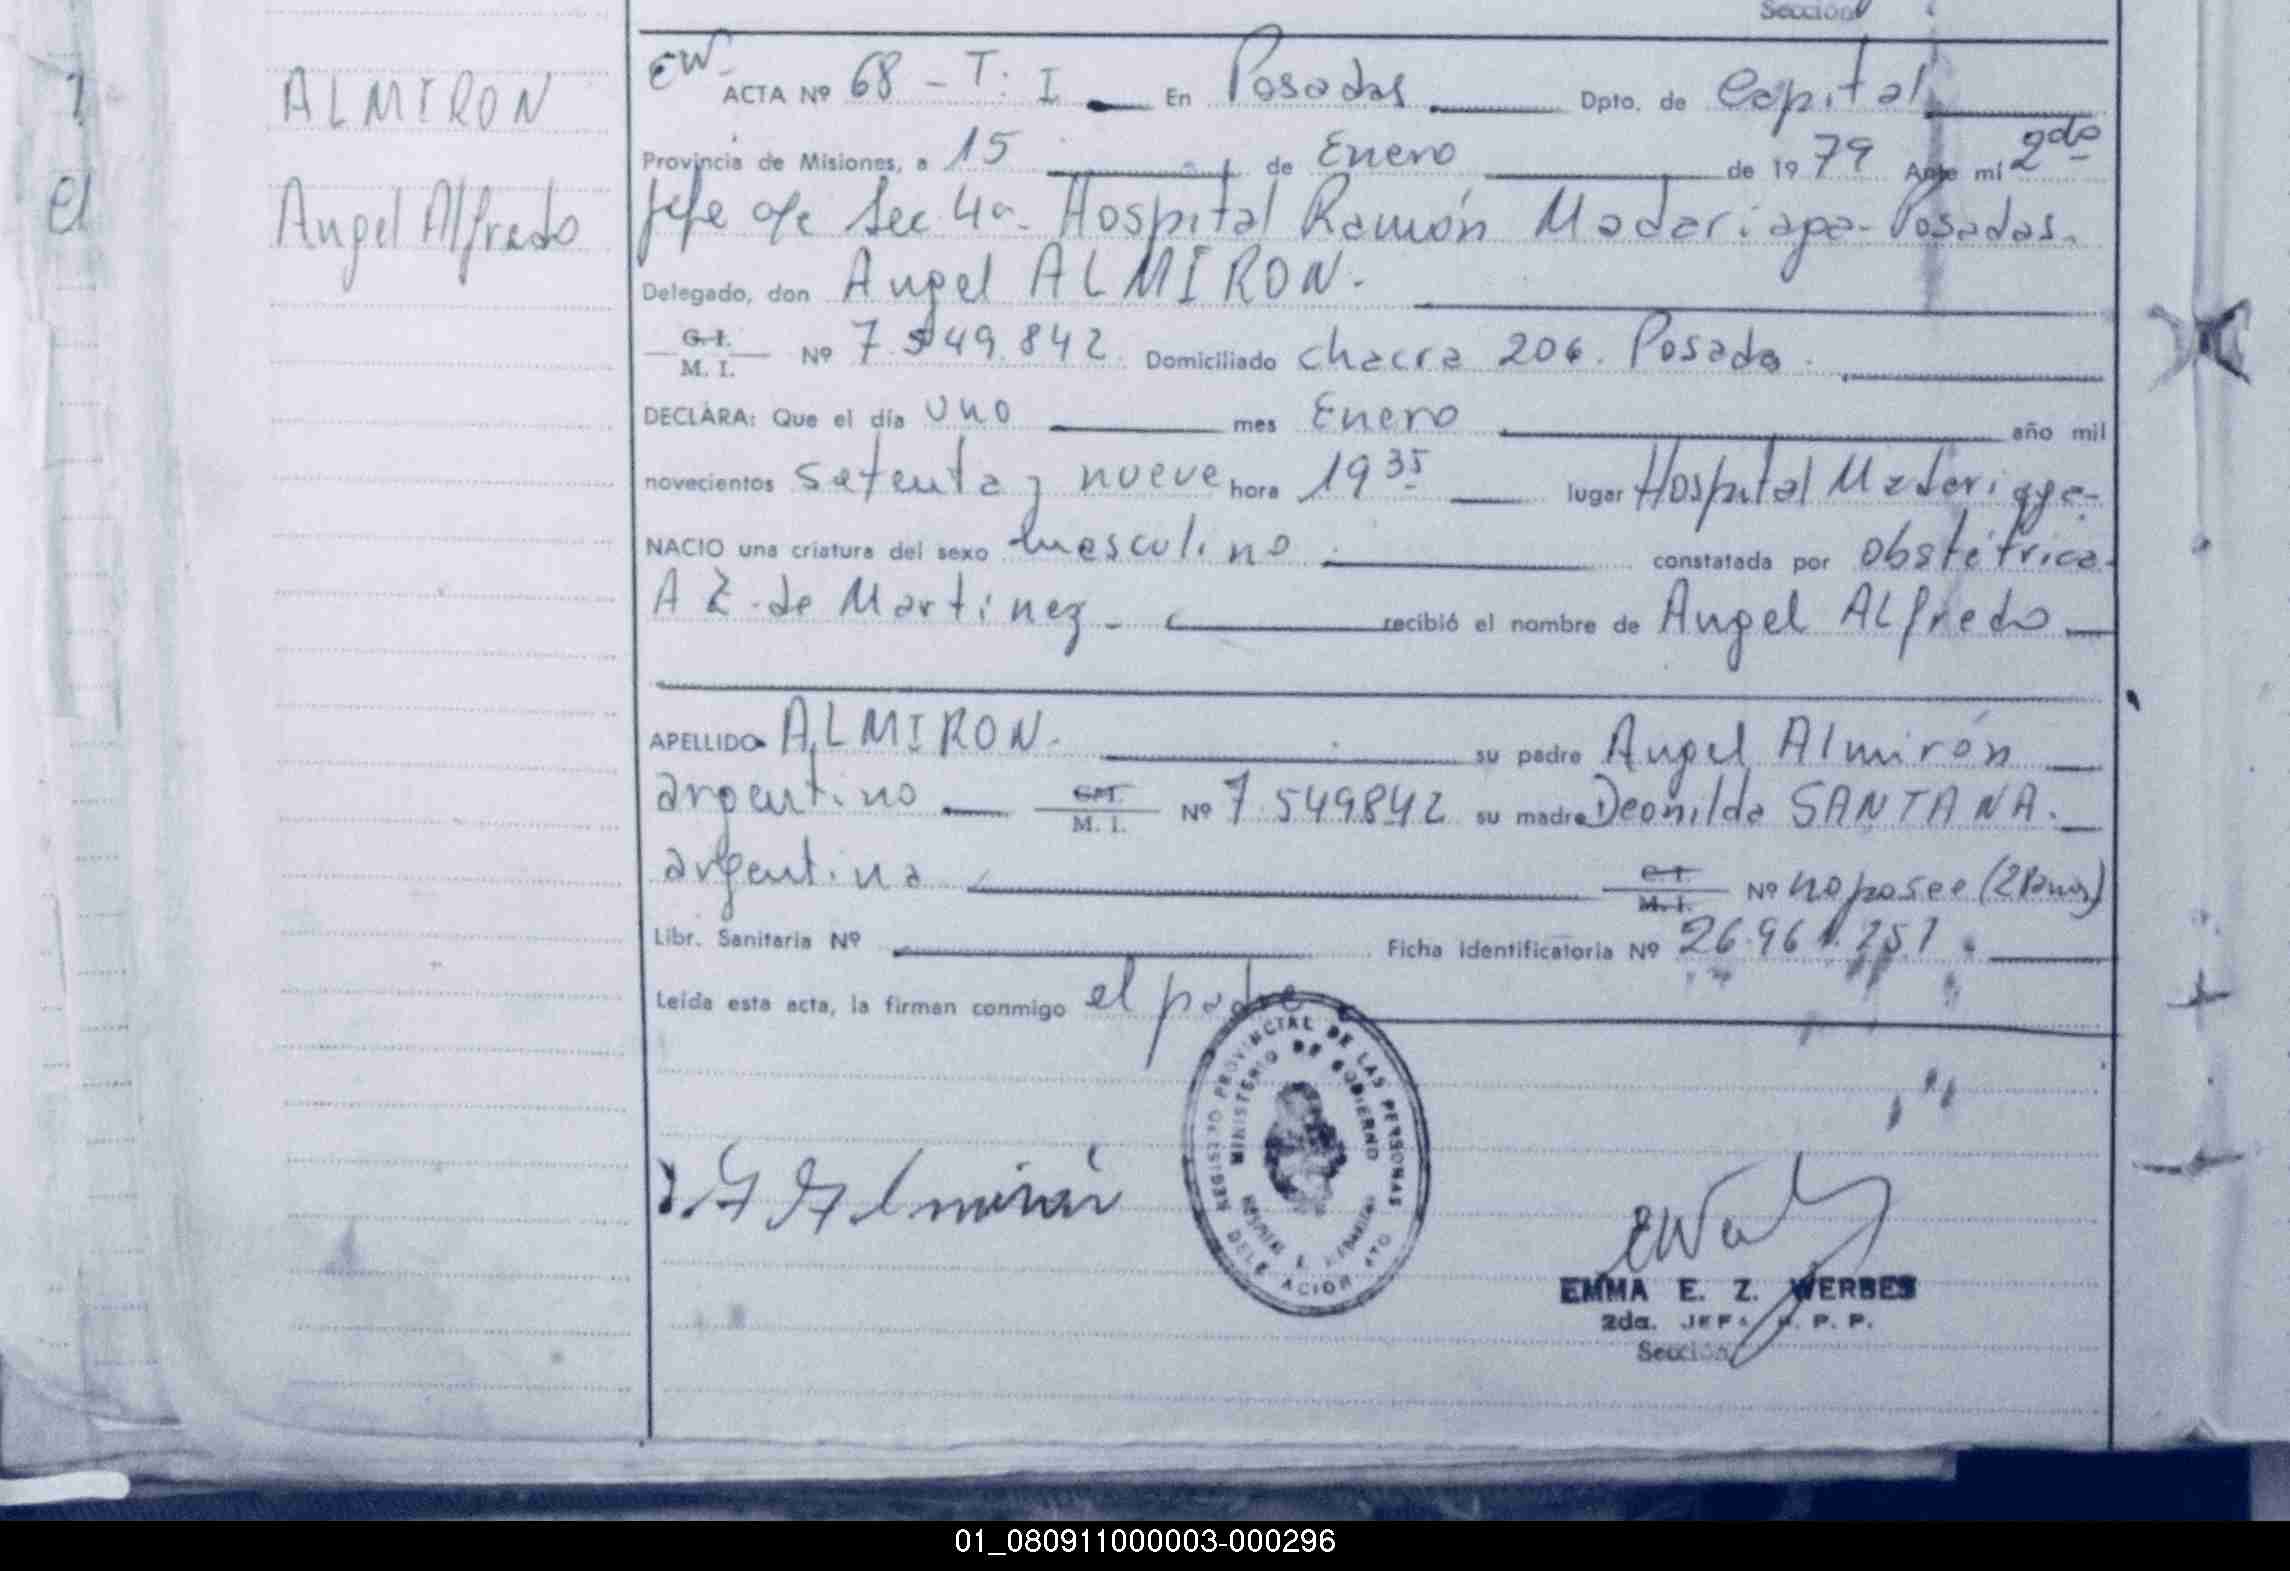 Sección
1
ALMIRON
el
Angel Alfredo
EW- ACTA Nº 68 - T. I En Posadas Dpto. de Capital
Provincia de Misiones, a 15 de Enero de 1979 Ante mí 2do
Jefe de Sec 4a- Hospital Ramón Madariaga- Posadas.
Delegado, don Angel ALMIRON.
C. I. M. I. Nº 7.549.842. Domiciliado chacra 206. Posadas.
DECLARA: Que el día uno mes Enero año mil
novecientos setenta y nueve hora 19 35 lugar Hospital Madariaga-
NACIO una criatura del sexo masculino. constatada por obstétrica
A Z. de Martinez- recibió el nombre de Angel ALfredo
APELLIDO ALMIRON. su padre Angel Almirón
argentino C.I. M. I. Nº 7.549842 su madre Deonilda SANTANA.
argentina C. I. M. I. Nº no posee (28 años)
Libr. Sanitaria Nº Ficha Identificatoria Nº 26.961.251.
Leída esta acta, la firman conmigo el padre
REGISTRO PROVINCIAL DE LAS PERSONAS
MINISTERIO DE GOBIERNO
Almirón
EMMA E. Z. WERBES
2da. JEFA R. P. P.
Sección
01_080911000003-000296